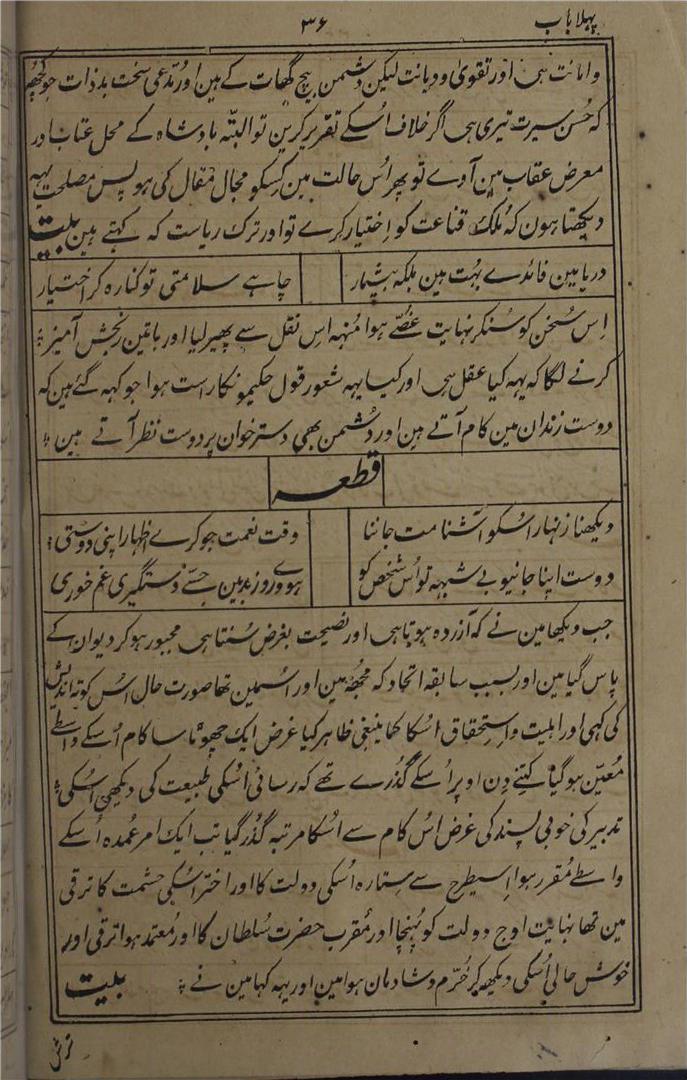 پہلا باب ۳۶
و امانت ہی اور تقویٰ و دیانت لیکن دشمن بیچ گھات کے ہین اور مدعی سخت بدذات جو کچھ
کہ حُسن سیرت تیری ہی اگر خلاف اُسکے تقریر کرین تو البتّہ بادشاہ کے محل عتاب اور
معرض عقاب مین آوے تو پھر اُس حالت مین کِسکو مجال مقال کی ہو پس مصلحت یہہ
دیکھتا ہون کہ مُلک قناعت کو اِختیار کرے تو اور ترک ریاست کہ کہتے ہین بیت
دریا مین فائدے بہُت ہین بلکہ بیشمار چاہے سلامتی تو کنارہ کر اختیار
اِس سُخن کو سُنکر نہایت غصّے ہوا مُنہہ اِس نقل سے پھیر لیا اور باتین رنجش آمیز
کرنے لگا کہ یہہ کیا عقل ہی اور کیا یہہ شعور قول حکیمونکا راست ہوا جو کہہ گئے ہین کہ
دوست زندان مین کام آتے ہین اور دُشمن بھی دسترخوان پر دوست نظر آتے ہین
قطعہ
دیکھنا زنہار اُسکو آشنا مت جاننا وقت نعمت جو کرے اظہار اپنی دوستی
دوست اپنا جانیو بے شبہہ تو اُس شخص کو ہووے روز بد مین جسّے دستگیری غم خوری
جب دیکھا مین نے کہ آزردہ ہوتا ہی اور نصیحت بغرض سُنتا ہی مجبور ہو کر دیوان کے
پاس گیا مین اور بسبب سابقہ اتحاد کہ مجھ مین اور اُسمین تھا صورت حال اُس کوتہ اندیش
کی کہی اور اہلیت و اِستحقاق اُسکا کما ینبغی ظاہر کیا غرض ایک چھوٹا سا کام اُسکے واسطے
مُعیّن ہو گیا کِتنے دِن اوپر اُسکے گذرے تھے کہ رسائی اُسکی طبیعت کی دیکھی اُسکی
تدبیر کی خوبی پسند کی غرض اُس کام سے اُسکا مرتبہ گذر گیا تب ایک امر عُمدہ اُسکے
واسطے مُقرر ہوا اِسیطرح سے ستارہ اُسکی دولت کا اور اختر اُسکی حشمت کا ترقی
مین تھا نہایت اوج دولت کو پُہنچا اور مُقرب حضرت سُلطان کا اور مُعتمد ہوا ترقی اور
خوش حالی اُسکی دیکھہ کر خُرّم و شادمان ہوا مین اور یہہ کہا مین نے بیت